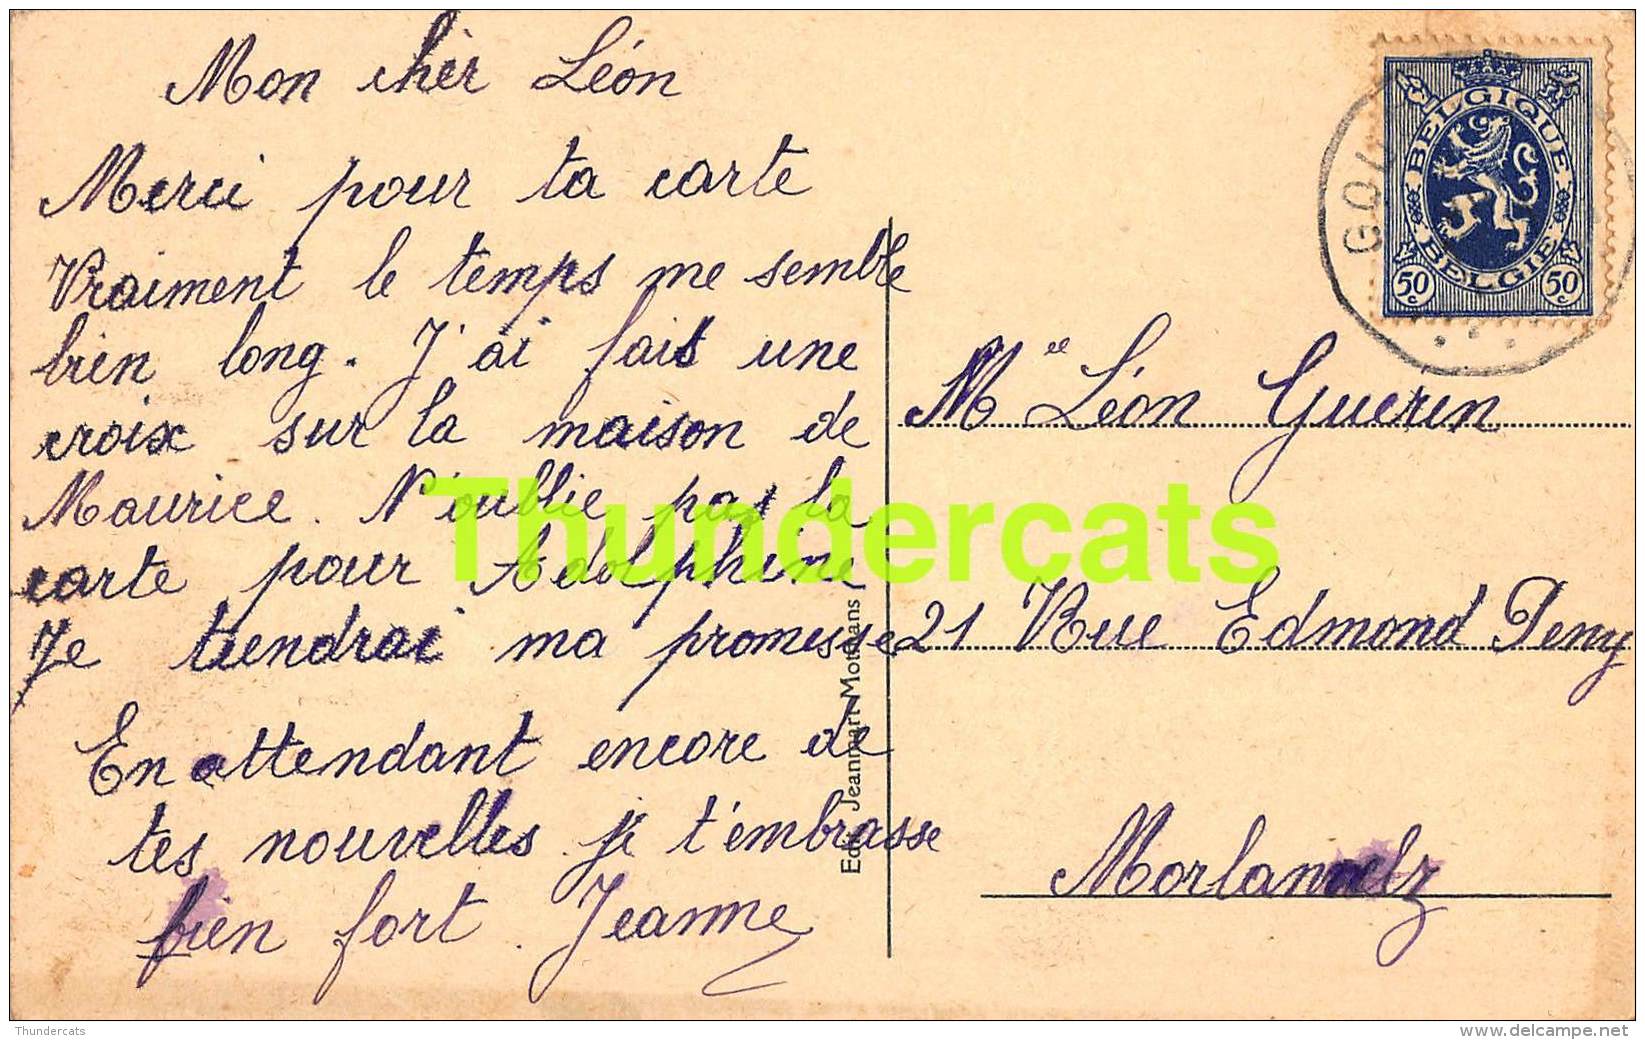 Mon cher Léon
Merci pour ta carte
Vraiment le temps me semble
bien long. J'ai fait une
croix sur la maison de
Maurice. N'oublie pas la
carte pour Adolphine
Je tiendrai ma promesse
En attendant encore de
tes nouvelles je t'embrasse
bien fort. Jeanne
Edit. Jeanmart-Mormans
BELGIQUE
BELGIE
50 c 50 c
Mᵉᵉ Léon Guerin
21 Rue Edmond Peny
Morlanwelz
Thundercats
Thundercats
www.delcampe.net